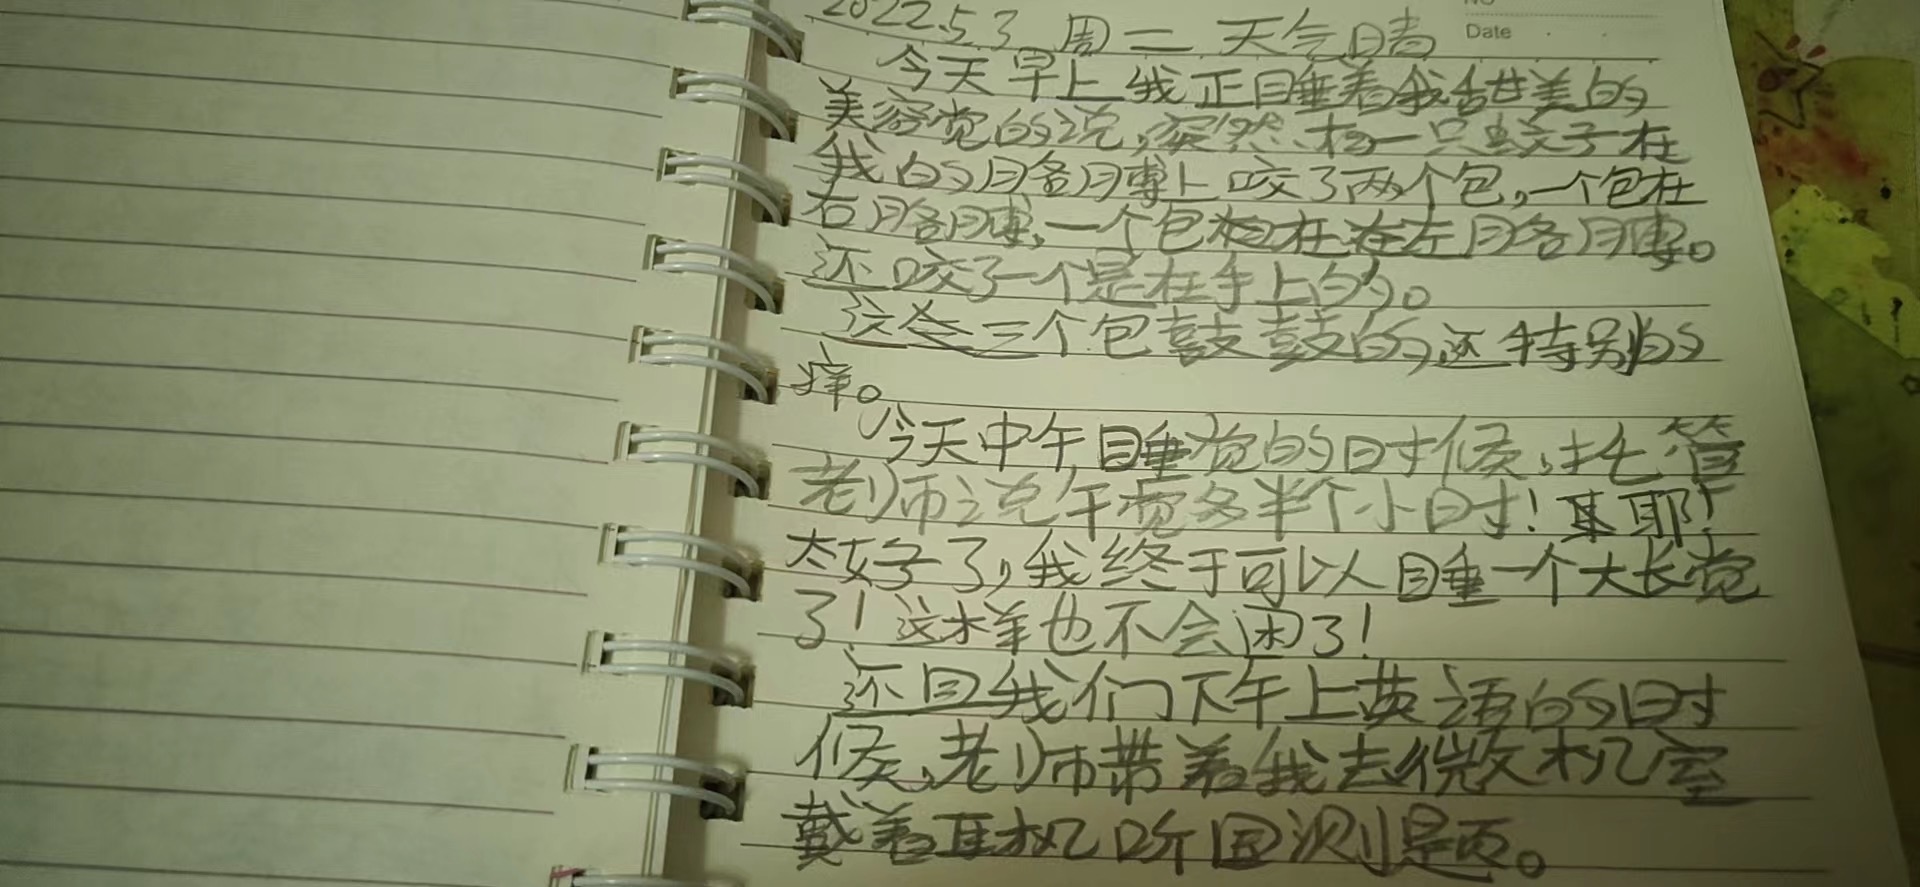 No
Date
2022.5.3 周二 天气晴
今天早上我正睡着我甜美的
美容觉的说,突然有一只蚊子在
我的胳膊上咬了两个包,一个包在
右胳膊,一个包在左胳膊。
还咬了一个是在手上的。
这三个包鼓鼓的,还特别的
痒。
今天中午,睡觉的时候,托管
老师说午觉多半个小时!耶!
太好了,我终于可以睡一个大长觉
了!这样也不会困了!
还回我们下午上英语的时
候,老师带着我去微机室
戴着耳机听国测是页。